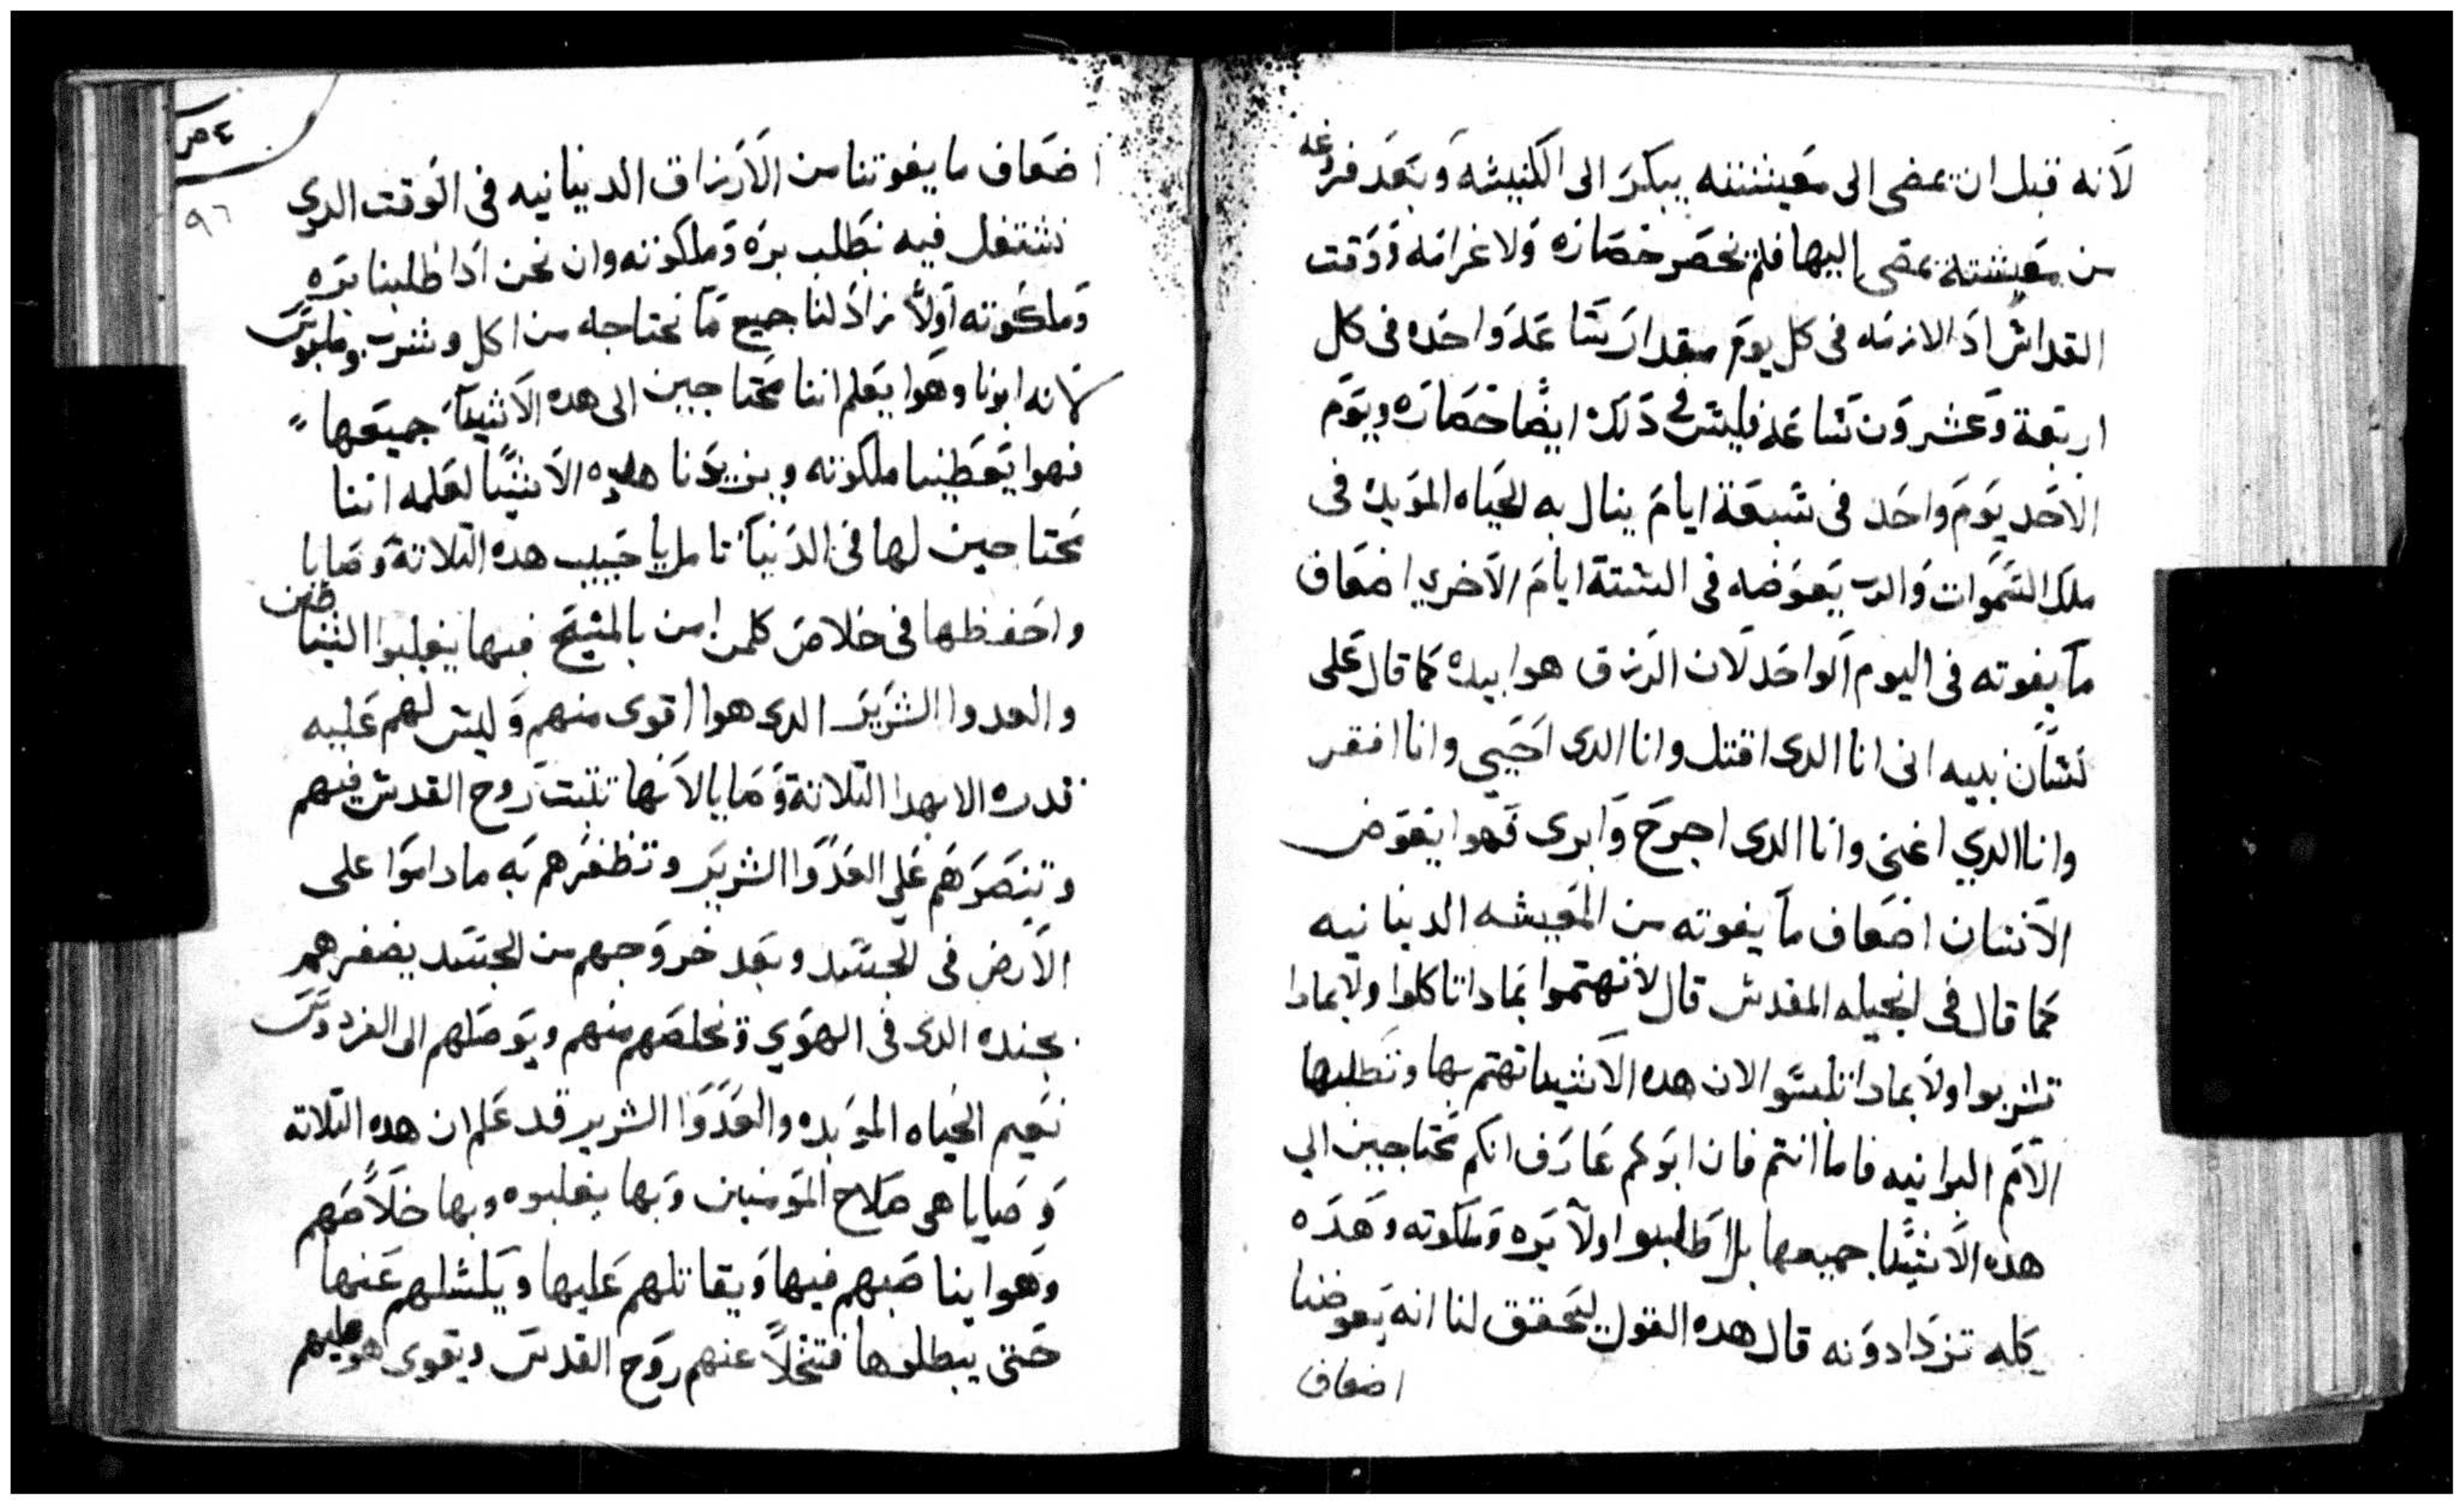 لانه قبل ان يمضى الى معيشته يبكر الى الكنيسه وبعد فراغه
من معيشته يمضى اليها فلم نخصر خصاره ولا غرامه ووقت
القداس اذا لازمه فى كل يوم مقدار ساعه واحده فى كل
اربعة وعشرون ساعه فليس فى ذلك ايضا خصاره ويوم
الاحد يوم واحد فى سبعة ايام ينال به الحياه الموبده فى
ملك السموات والرب يعوضه فى الستة ايام الاخري اضعاف
ما يفوته فى اليوم الواحد لان الرزق هوا بيده كما قال على
لسان نبيه انى انا الدى اقتل وانا الدى احيي وانا افقر
وانا الدي اغنى وانا الدى اجرح وابرى فهوا يعوض
الانسان اضعاف ما يفوته من المعيشه الدنيانيه
كما قال فى انجيله المقدس قال لا تهتموا بمادا تاكلوا ولا بمادا
تشربوا ولا بمادا تلبسوا لان هده الاشيا تهتم بها وتطلبها
الامم البرانيه فاما انتم فان ابوكم عارف انكم محتاجين الي
هده الاشيا جميعها بل اطلبوا اولا بره وملكوته وهده
كله تزدادونه قال هده القول ليحقق لنا انه يعوضنا
اضعاف
٩٦
اضعاف ما يفوتنا من الارزاق الدنيانيه فى الوقت الدي
نشتغل فيه بطلب بره وملكوته وان نحن ادا طلبنا بره
وملكوته اولا زاد لنا جميع ما نحتاجه من اكل وشرب وملبوس
لانه ابونا وهوا يعلم اننا محتاجين الى هده الاشيا جميعها
فهوا يعطينا ملكوته ويزيدنا هده الاشيا لعلمه اننا
محتاجين لها فى الدنيا تامل يا حبيب هده التلاتة وصايا
واحفظها فى خلاص كلمن امن بالمسيح فبها يغلبوا الشياطين
والعدوا الشرير الدى هوا اقوى منهم وليس لهم عليه
قدره الا بهدا التلاتة وصايا لانها تتبت روح القدس فيهم
وتنصرهم علي العدوا الشرير وتظفرهم به ما داموا على
الارض فى الجسد وبعد خروجهم من الجسد يضفرهم
بجنده الدى فى الهوي وتخلصهم منهم ويوصلهم الى الفردوس
نعيم الحياه الموبده والعدوا الشرير قد علم ان هده التلاته
وصايا هى صلاح المومنين وبها يغلبوه وبها خلاصهم
وهوا يناصبهم فيها ويقاتلهم عليها ويكسلهم عنها
حتى يبطلوها فتتخلا عنهم روح القدس ويقوى هو عليهم